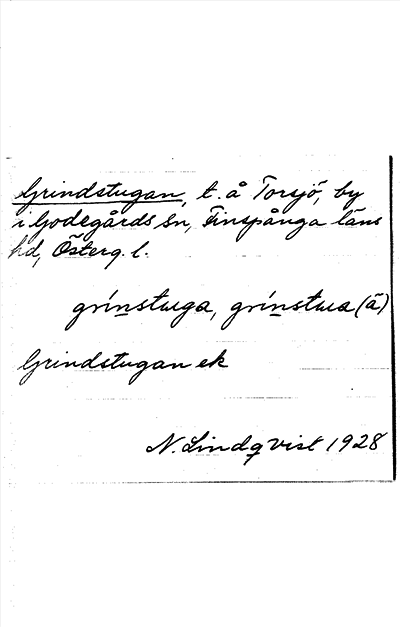 Grindstugan, t. å Torsjö, by
i Godegårds sn, Finspånga läns
hd, Österg. l.
grínstuga, grínstua (ä)
Grindstugan ek
N. Lindqvist 1928